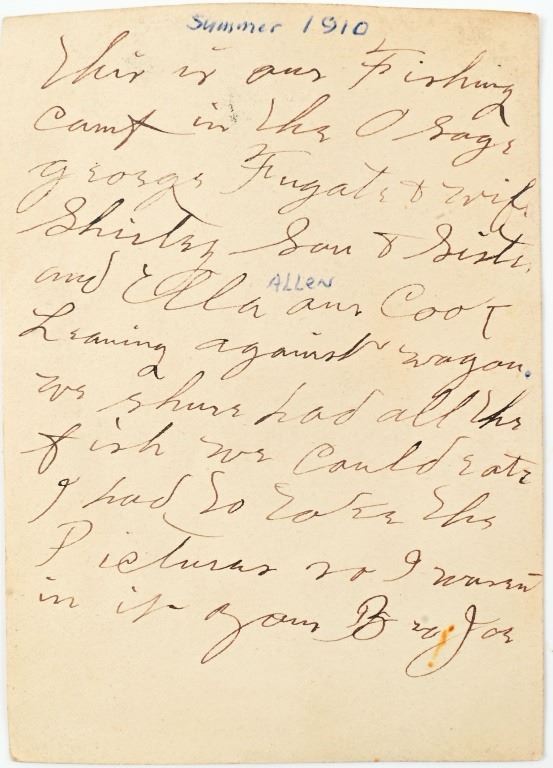 Summer 1910
This is our Fishing
camp in the Osage
george Fugate & wife
Shirley Son & Sister
and Ella ALLEN our Cook
Leaning against wagon.
we shure had all the
fish we could eate
I had to take the
Pictures so I wasent
in it your Bro Joe